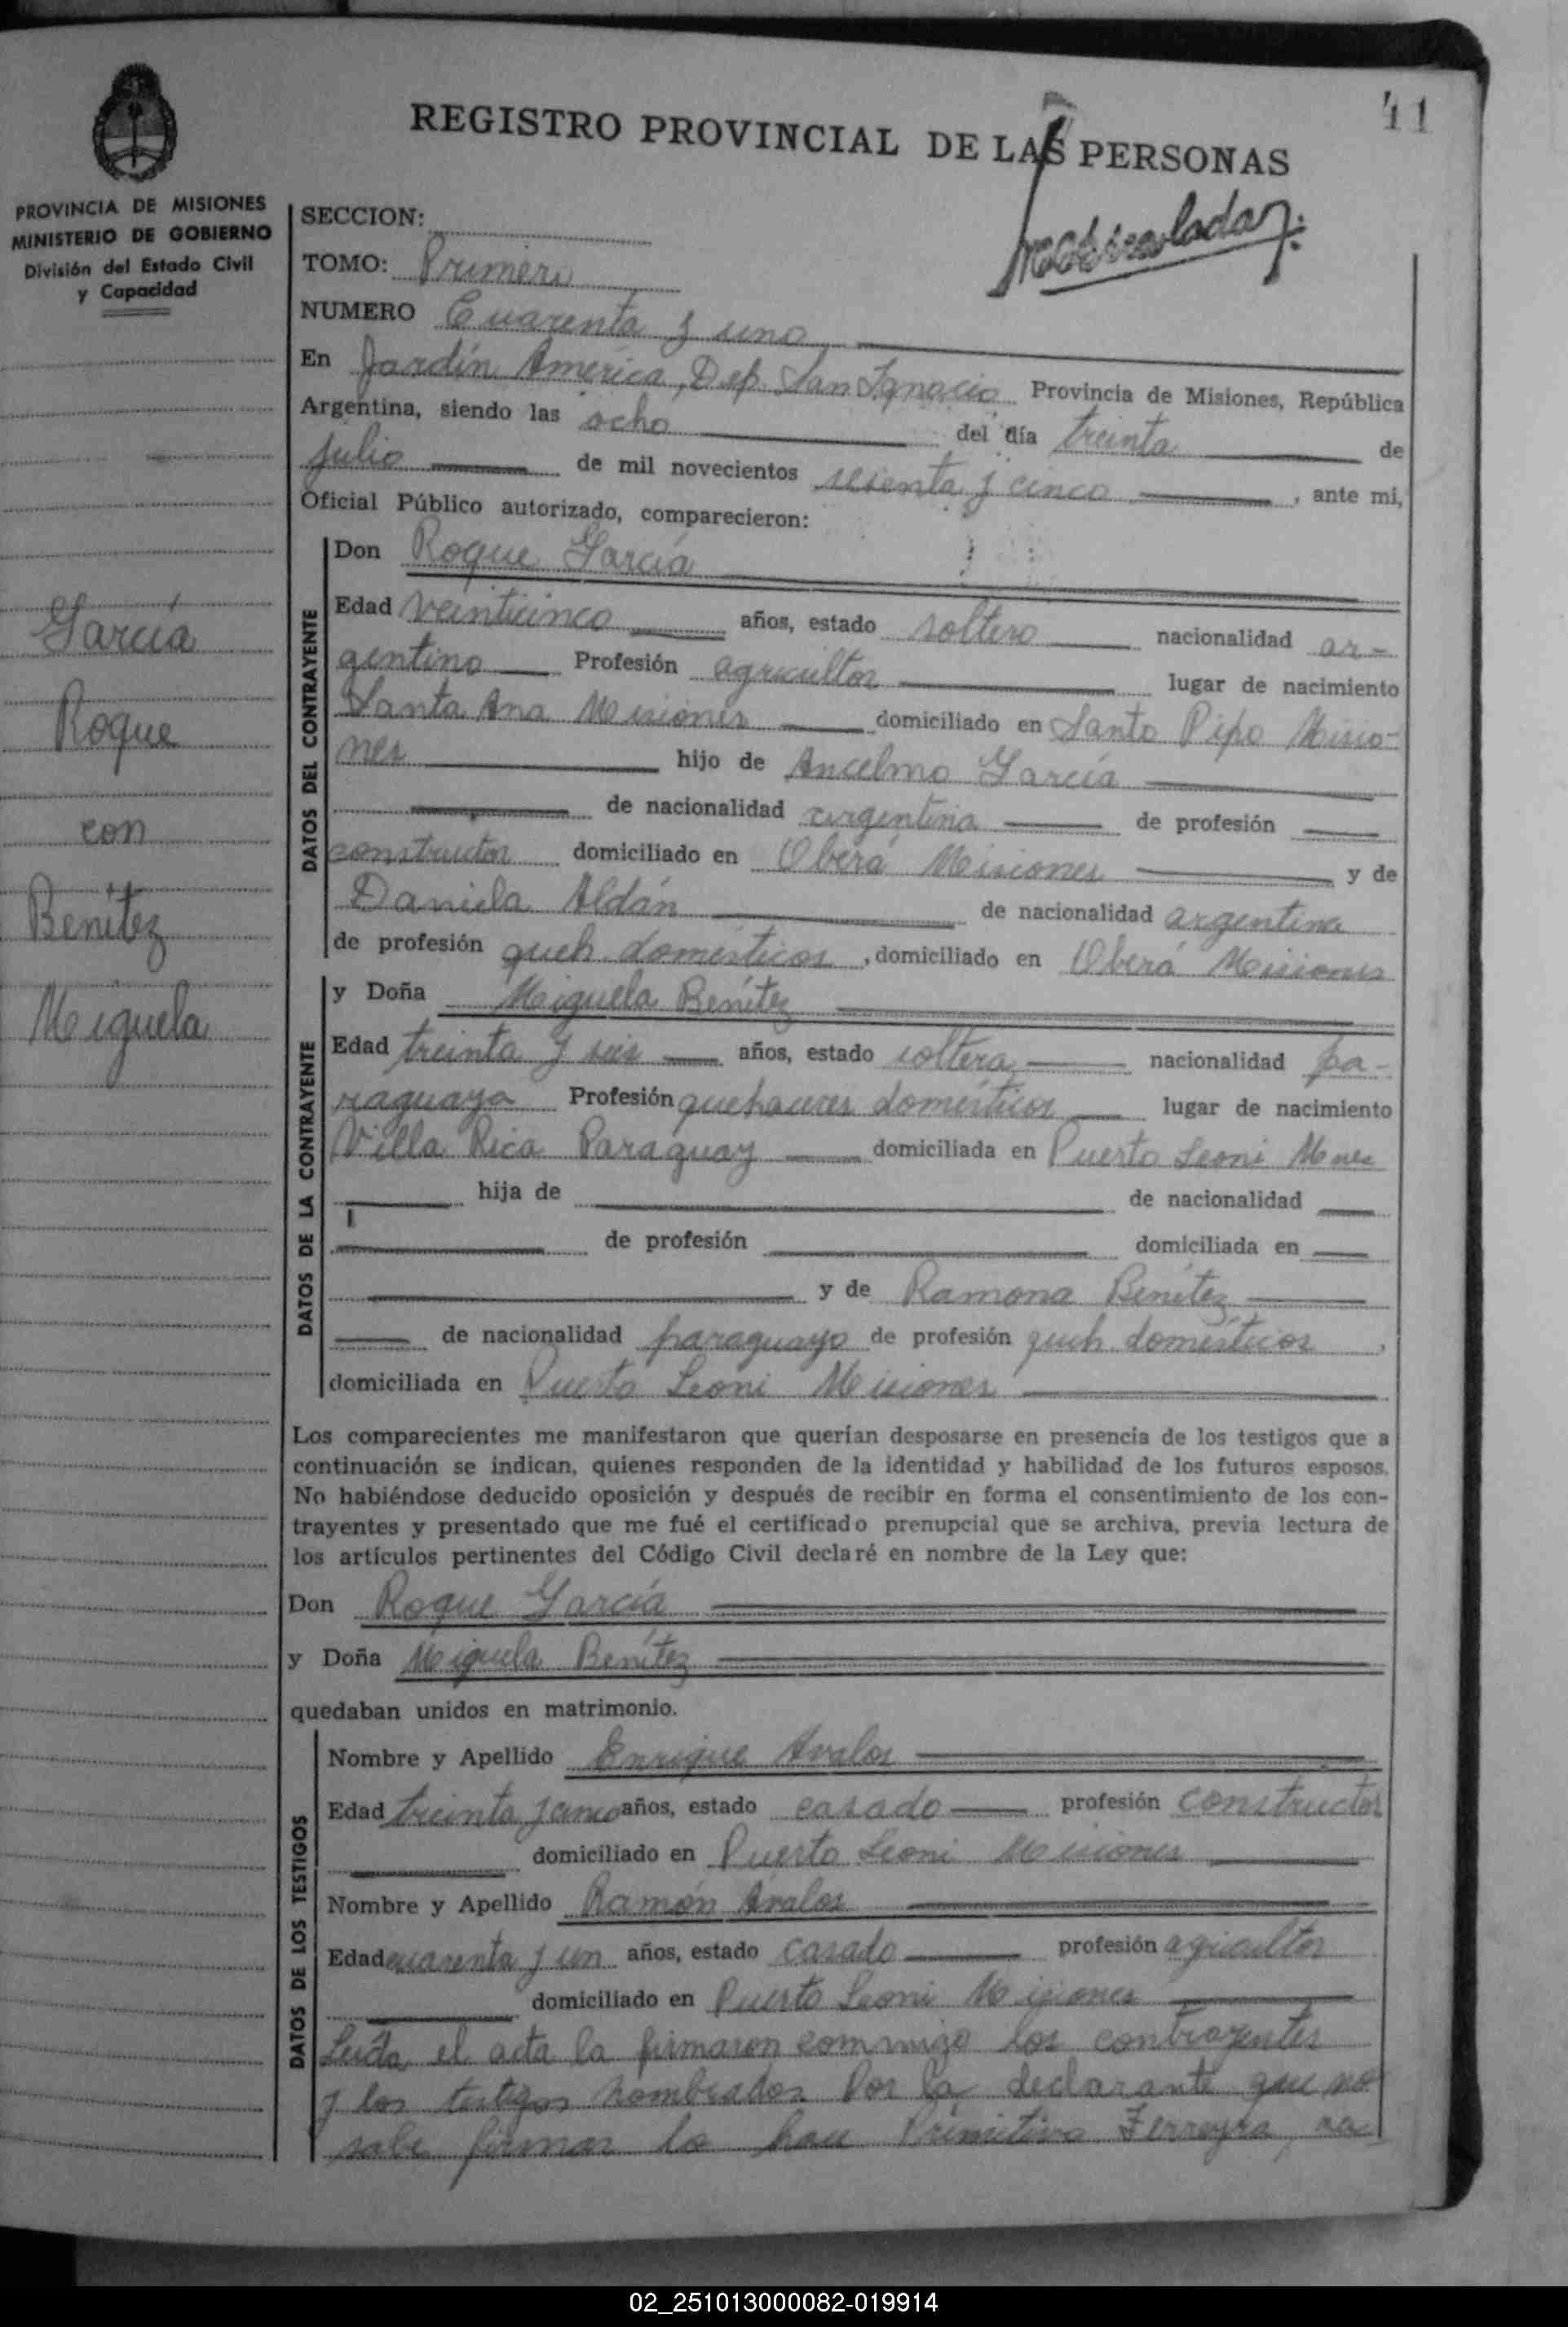 41
REGISTRO PROVINCIAL DE LAS PERSONAS
PROVINCIA DE MISIONES
MINISTERIO DE GOBIERNO
División del Estado Civil
y Capacidad
SECCION:
TOMO: Primero
NUMERO Cuarenta y uno
En Jardín América, Dep. San Ignacio Provincia de Misiones, República
Argentina, siendo las ocho del día treinta de
julio de mil novecientos sesenta y cinco, ante mi,
Oficial Público autorizado, comparecieron:
García
Roque
con
Benítez
Meiguela
DATOS DEL CONTRAYENTE
Don Roque García
Edad veinticinco años, estado soltero nacionalidad ar-
gentino Profesión agricultor lugar de nacimiento
Santa Ana Misiones domiciliado en Santo Pipo Misio-
nes hijo de Ancelmo García
de nacionalidad argentina de profesión
constructor domiciliado en Oberá Misiones y de
Daniela Aldán de nacionalidad argentina
de profesión queh. domésticos, domiciliado en Oberá Misiones
DATOS DE LA CONTRAYENTE
y Doña Meiguela Benítez
Edad treinta y seis años, estado soltera nacionalidad pa-
raguaya Profesión quehaceres domésticos lugar de nacimiento
Villa Rica Paraguay domiciliada en Puerto Leoni Mnes
hija de de nacionalidad
de profesión domiciliada en
y de Ramona Benítez
de nacionalidad paraguayo de profesión queh. domésticos,
domiciliada en Puerto Leoni Misiones
Los comparecientes me manifestaron que querían desposarse en presencia de los testigos que a
continuación se indican, quienes responden de la identidad y habilidad de los futuros esposos.
No habiéndose deducido oposición y después de recibir en forma el consentimiento de los con-
trayentes y presentado que me fué el certificado prenupcial que se archiva, previa lectura de
los artículos pertinentes del Código Civil declaré en nombre de la Ley que:
Don Roque García
y Doña Meiguela Benítez
quedaban unidos en matrimonio.
DATOS DE LOS TESTIGOS
Nombre y Apellido Enrique Avalos
Edad treinta y cinco años, estado casado profesión constructor
domiciliado en Puerto Leoni Misiones
Nombre y Apellido Ramón Avalos
Edad cuarenta y un años, estado casado profesión agricultor
domiciliado en Puerto Leoni Misiones
Leída el acta la firmaron conmigo los contrayentes
y los testigos nombrados Por la declarante que no
sabe firmar lo hace Primitivo Ferreyra,
02_251013000082-019914